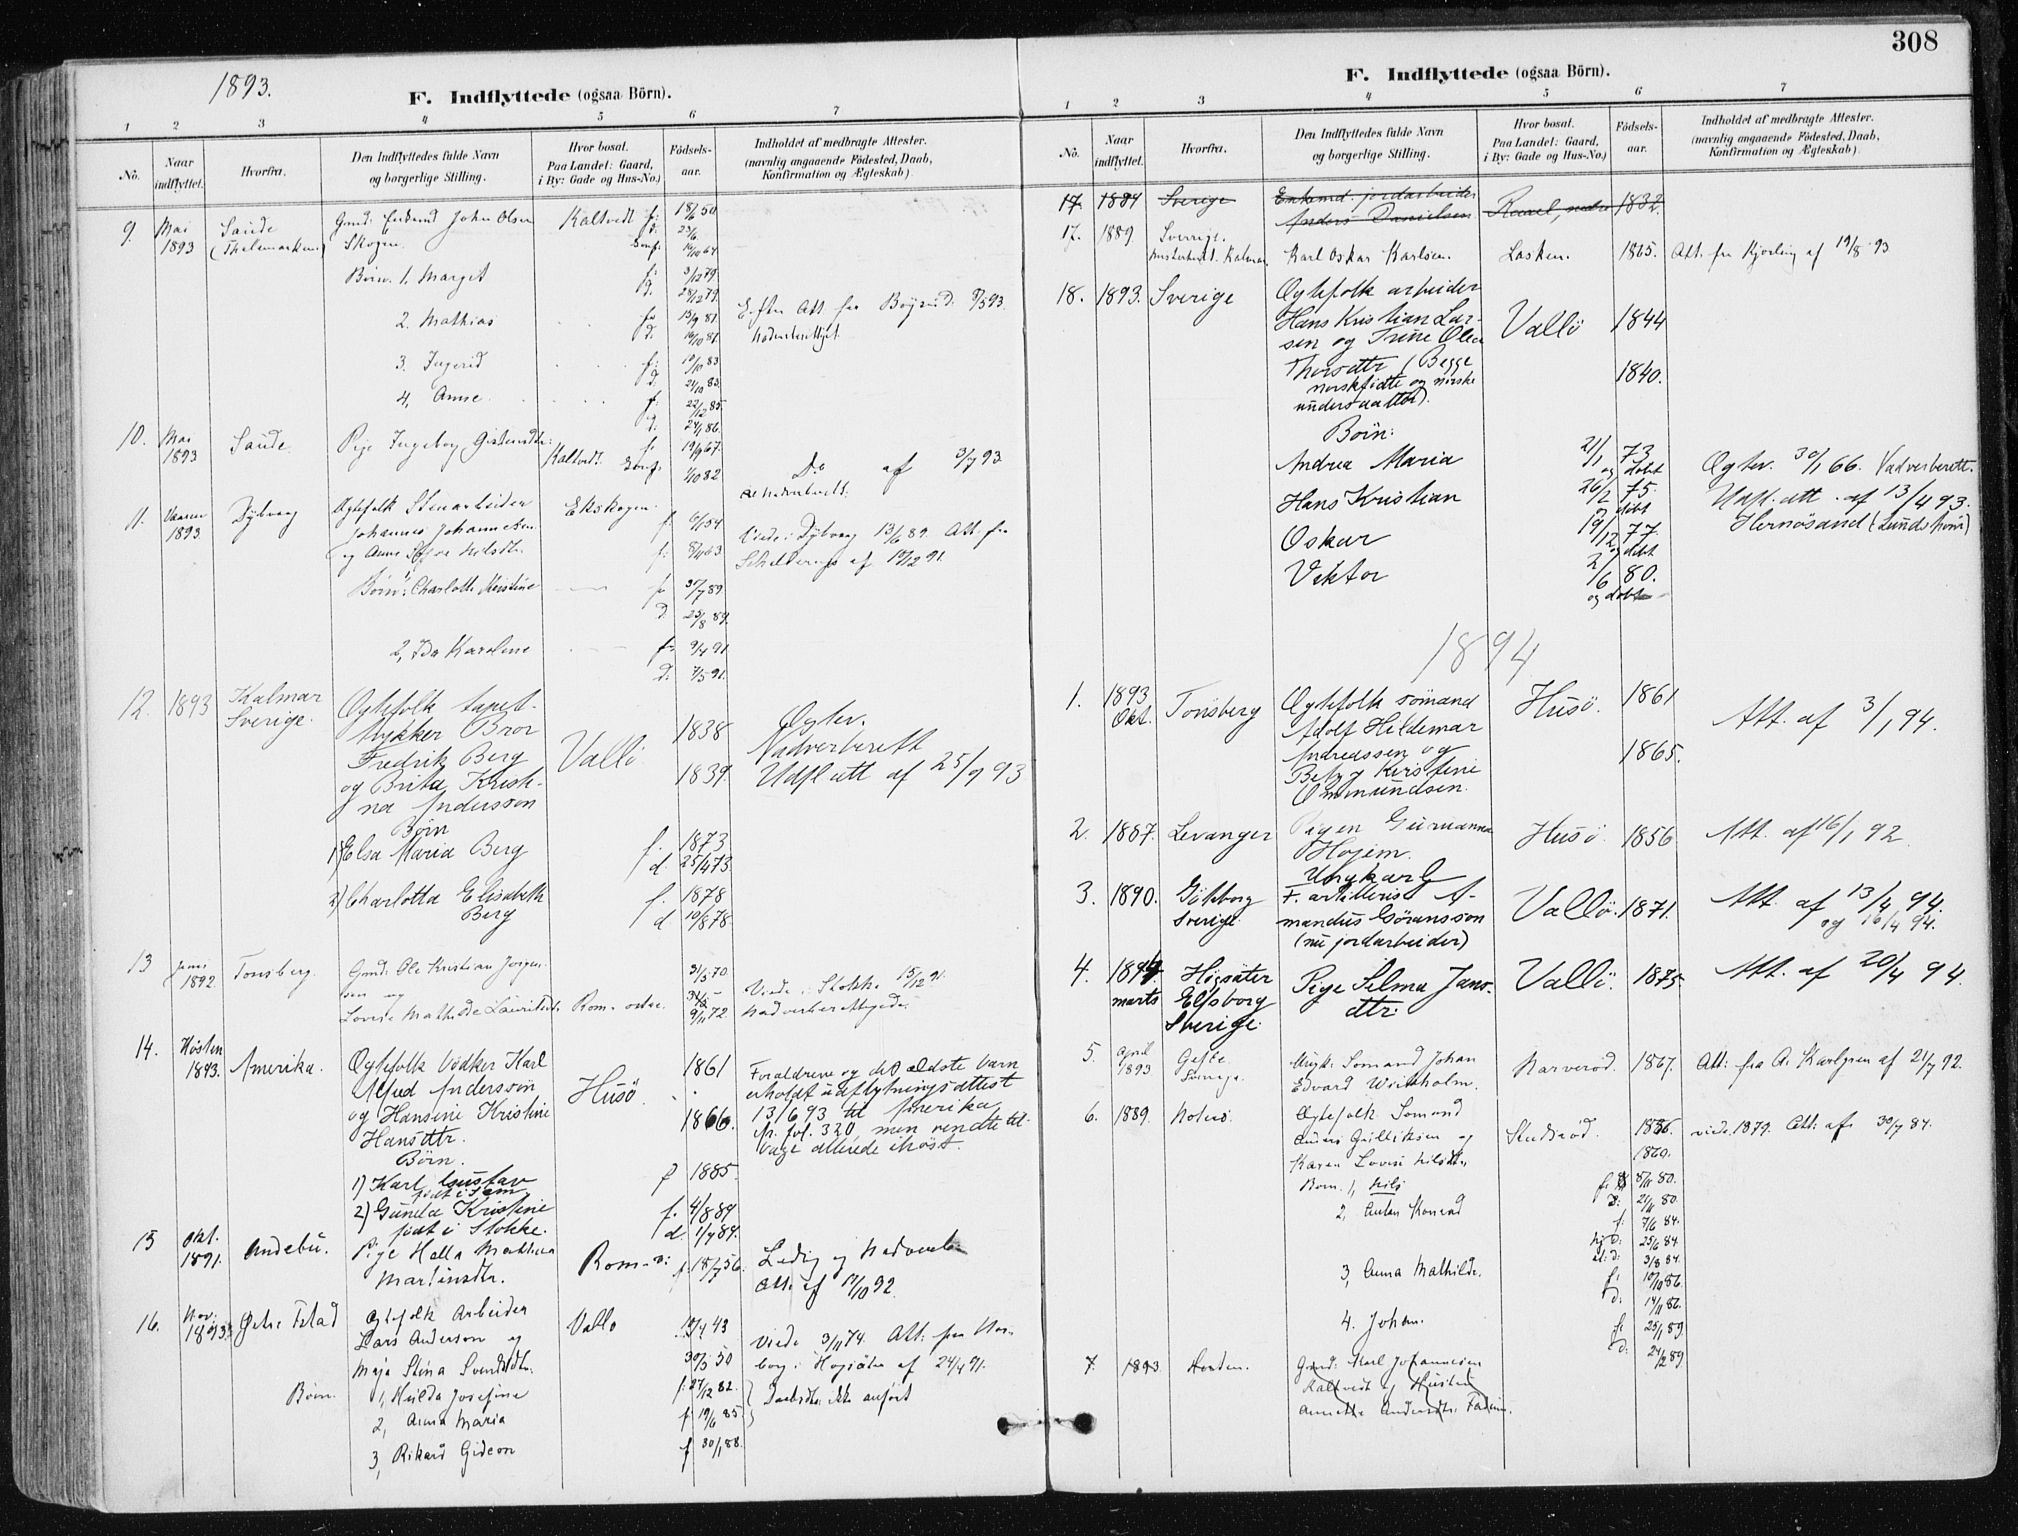 1893.
F. Indflyttede (ogsaa Börn).
1 2 3 4 5 6 7
No.
Naar indflyttet.
Hvorfra.
Den Indflyttedes fulde Navn og borgerlige Stilling.
Hvor bosat. Paa Landet: Gaard, i By: Gade og Hus-No.)
Födsels-aar.
Indholdet af medbragte Attester. (navnlig angaaende Födested, Daab, Konfirmation og Ægteskab).
9. Mai Sande Gmd. John Olsen Kaltvedt f: 18/6 50
1893 (Thelemarken) Skogen
Börn. 1, Marget f: 3/12 79.
d. 28/12 79.
2. Mathias f: 13/9 81
d. 16/10 81.
3. Ingerid f: 10/10 83
d. 21/10 83.
4, Anne. f: 22/12 85.
d. 24/1 86.
10. Mai Sande Pige Ingeborg f. 19/9 67.
1893 Kaltvedt. Conf. 1/10 82 Do af 3/7 93
11. 1893. Dÿbvag Ægtefolk Stenarbeider Ekskogen. f 6/1 54
Johannes Johannesen
og Anne Nilsdtr. f: 8/4 63 Viede i Dÿbvag 13/6 89. Att. fra
Börn: Charlotte Kristine f: 30/7 89
D 25/8 89.
2, Ida Karoline f: 9/4 91
D. 7/5 91.
12. 1893 Kalmar Ægtefolk tapet-
Sverige. trykker Bror 1838 Ægtev.
Fredrik Berg Vallö Nadverberett
og Brita Krist- 1839. Udfl.att af 25/9 93
na Andersson
Börn
1) Elsa Maria Berg f. 1873
d. 25/4 73.
2) Charlotta Elisabeth f. 1878
Berg d 10/8 78.
13 Juni Tonsberg. Gmd: Ole Kristian Jorgen- 31/5 70
1892 sen og Viede i Stokke 15/12 91
Lovise Mathilde Lauritsdtr. Rom. ostre. 9/11 72. nadverberettigede.
14. Høsten Amerika. Ægtefolk Vödker Karl 1861 Forældrene og det ældste barn
1893. Alfred Anderssön Husö erholdt udflytningsattest
og Hansine Kristine 1866. 13/6 93 til Amerika
Hansdtr. Nr. fol. 320 men vendte til-
Börn. bage allerede ihøst.
1) Karl Gustav f 1885
födt i Sem
2) Gunda Kristine f. 4/8 89
födt i Stokke. d. 1/9 89.
15 Okt. Andebu. Pige Helle Mathea Rom. f. 18/7 56. Ledig og
1891. Martinsdtr. Att. af 17/10 92.
16. Nov. Ægtefolk Arbeider Vallo 43
1893. Lars Anderson og Viede 3/11 74. Att. fra
Maja Stina Svendsdtr. 30/5 50 af 24/4 91.
Börn. 1, Hulda Josefine f: 27/12 82. Daabsdtr. ikke anfört
2, Anna Maria f 19/6 85
3, Rikard Gideon f 30/1 88.
308
F. Indflyttede (ogsaa Börn).
1 2 3 4 5 6 7
No.
Naar indflyttet.
Hvorfra.
Den Indflyttedes fulde Navn og borgerlige Stilling.
Hvor bosat. Paa Landet: Gaard, i By: Gade og Hus-No.)
Födsels-aar.
Indholdet af medbragte Attester. (navnlig angaaende Födested, Daab, Konfirmation og Ægteskab).
17. 1884 Sverige Enkemd. jordarbeider 1832.
Anders Danielsen
17. 1889. Sverige.
Kalmar. Karl Oskar Karlsen. Lasken. 1865. Att. fra Kjorling af 19/8 93
18. 1893. Sverige Ægtefolk arbeider
Hans Kristian Lar- Vallö 1844
sen og Trine Olea
Thorsdtr (Begge 1840.
norskfödte og norske
undersaatter).
Börn:
Andrea Maria 21/1 73 Ægtev. 30/1 66. Nadverberett.
og döbt
Hans Kristian 26/2 75. Udfl.att. af 13/4 93.
döbt Hernösand
Oskar 19/12 77.
og döbt
Viktor 2/6 80.
og döbt
1894
1. 1893 Tönsberg Ægtefolk sömand Husö. 1861
Okt. Adolf Hildemar Att. af 3/1 94.
Andreassen og 1865.
Betzy Kirstine
Ommundsen.
2. 1887. Levanger Pigen Gurianna Husö. 1856 Att. af 16/1 92.
Hojem.
Ungkarl
3. 1890. Göteborg F. artillerist A- Vallö. 1871. Att. af 13/4 94.
Sverige mandus Göransson og 16/4 94.
(nu jordarbeider)
4. 1894 Högsäter Pige Selma Jans- Vallö. 1875 Att. af 20/4 94.
marts Elfsborg dtr.
Sverige.
5. April Gefle Ungk. Sömand Johan Narverod. 1867. Att. fra A. Karlgren af 21/7 92.
1893 Sverige. Edvard
6. 1889. Ægtefolk Somand
og 1856. viede 1879. Att. af 30/7 84.
Karen Lovise Nilsdtr. 1860.
Born. 1, Nils f: 8/11 80.
D: 21/11 80.
2, Anton Konrad f: 7/6 84.
hj.d: 25/6 84.
3/8 84.
3, Anna Mathilde. f: 10/10 86.
d: 14/11 86.
4. Johan. f: 25/1 89.
d: 24/2 89.
7. 1893 Gmd. Karl Johannesen
Kaltvedt og
Annette Andersdtr.